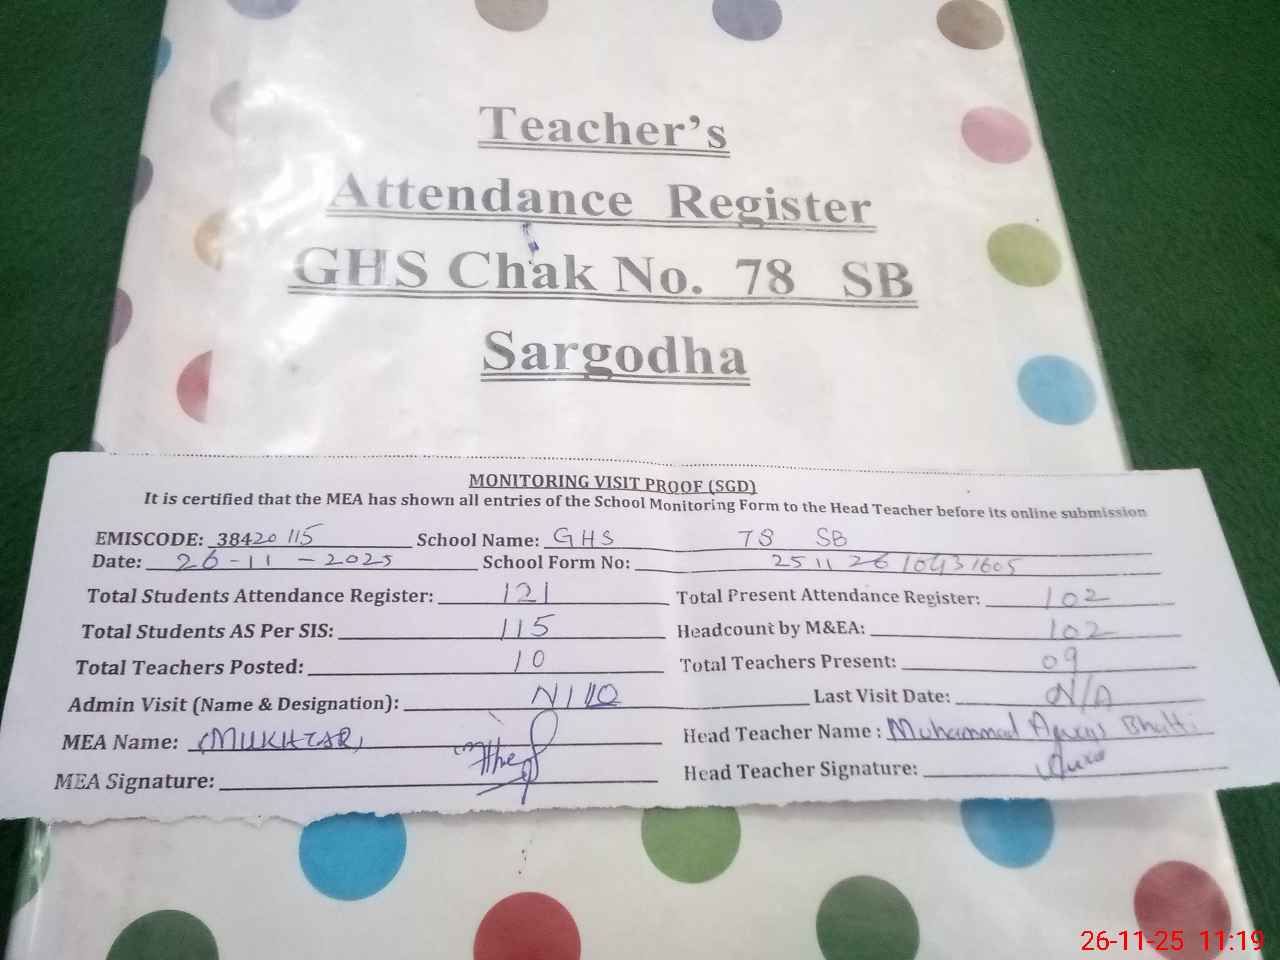 Teacher's
Attendance Register
GHS Chak No. 78 SB
Sargodha
MONITORING VISIT PROOF (SGD)
It is certified that the MEA has shown all entries of the School Monitoring Form to the Head Teacher before its online submission
EMISCODE: 38420115 School Name: GHS 78 SB
Date: 26-11-2025 School Form No:
Total Students Attendance Register: 121 Total Present Attendance Register: 102
Total Students AS Per SIS: 115 Headcount by M&EA: 102
Total Teachers Posted: 10 Total Teachers Present: 09
Admin Visit (Name & Designation): Last Visit Date: N/A
MEA Name: (MUKHTAR) Head Teacher Name: Muhammad Bhatti
MEA Signature: Head Teacher Signature:
26-11-25 11:19